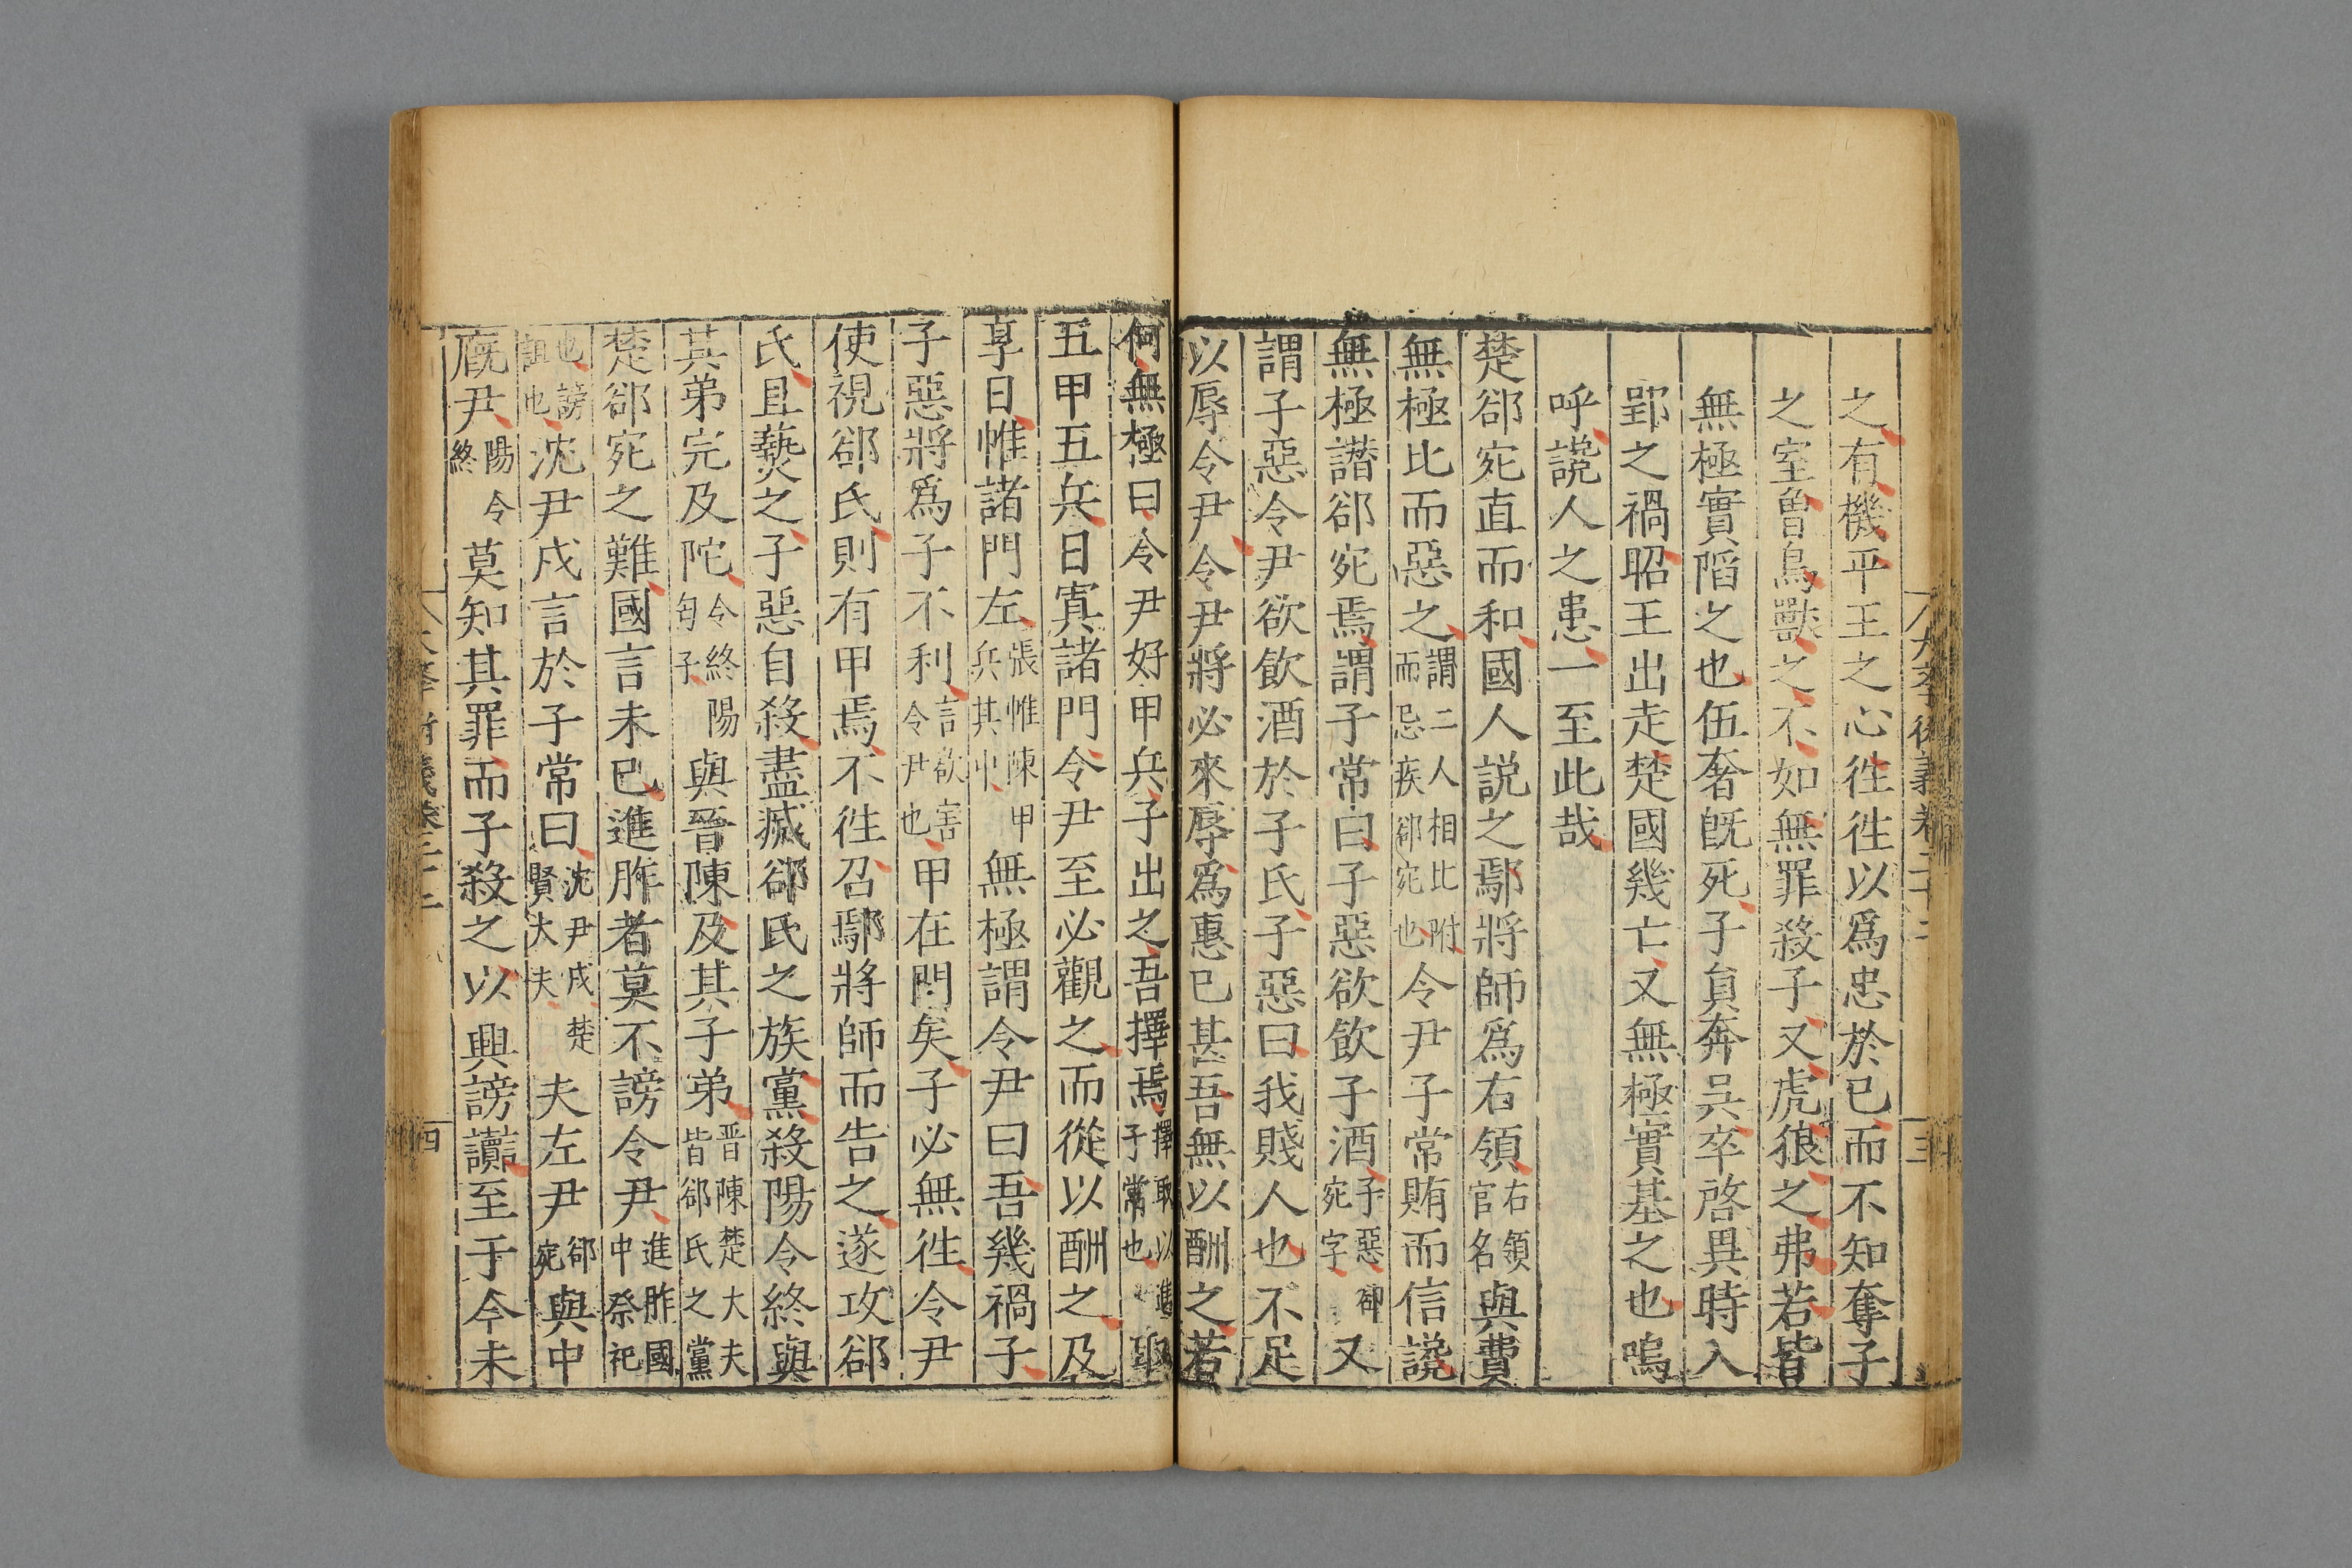 之有機平王之心徃徃以爲忠於已而不知奪子
之室曽鳥獸之不如無罪殺子又虎狼之弗若皆
無極實陷之也伍奢旣死子員奔吳卒啓異時入
郢之禍昭王出走楚國幾亡又無極實基之也嗚
呼讒人之患一至此哉
楚郤宛直而和國人説之鄢將師爲右領右領官名與費
無極比而惡之謂二人相比附而忌疾郤宛也令尹子常賄而信讒
無極譖郤宛焉謂子常曰子惡欲飲子酒子惡郤宛字又
謂子惡令尹欲飲酒於子氏子惡曰我賤人也不足
以辱令尹令尹將必來辱爲惠已甚吾無以酬之若
何無極曰令尹好甲兵子出之吾擇焉擇取以進子常也取
五甲五兵曰寘諸門令尹至必觀之而從以酬之及
享日帷諸門左張帷陳甲兵其中無極謂令尹曰吾幾禍子
子惡將爲子不利言欲害令尹也甲在門矣子必無徃令尹
使視郤氏則有甲焉不徃召鄢將師而告之遂攻郤
氏且爇之子惡自殺盡滅郤氏之族黨殺陽令終與
其弟完及陀令終陽匄子與晉陳及其子弟晋陳楚大夫皆郤氏之黨
楚郤宛之難國言未已進胙者莫不謗令尹進胙國中祭祀
也謗詛也沈尹戍言於子常曰沈尹戍楚賢大夫夫左尹郤宛與中
廐尹陽令終莫知其罪而子殺之以興謗讟至于今未
四